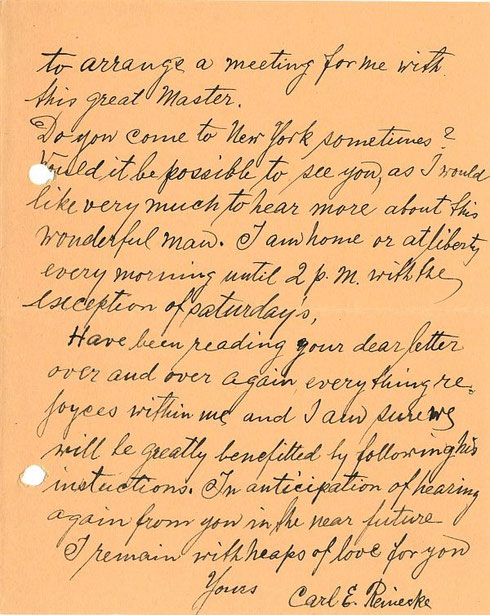 to arrange a meeting for me with
this great Master.
Do you come to New York sometimes?
Would it be possible to see you, as I would
like very much to hear more about this
wonderful man. I am home or at liberty
every morning until 2 p.m. with the
exception of saturday's,
Have been reading your dear letter
over and over again, everything re-
joyces within me, and I am sure we
will be greatly benefitted by following his
instuctions. In anticipation of hearing
again from you in the near future
I remain with heaps of love for you
Yours Carl E. Reinecke